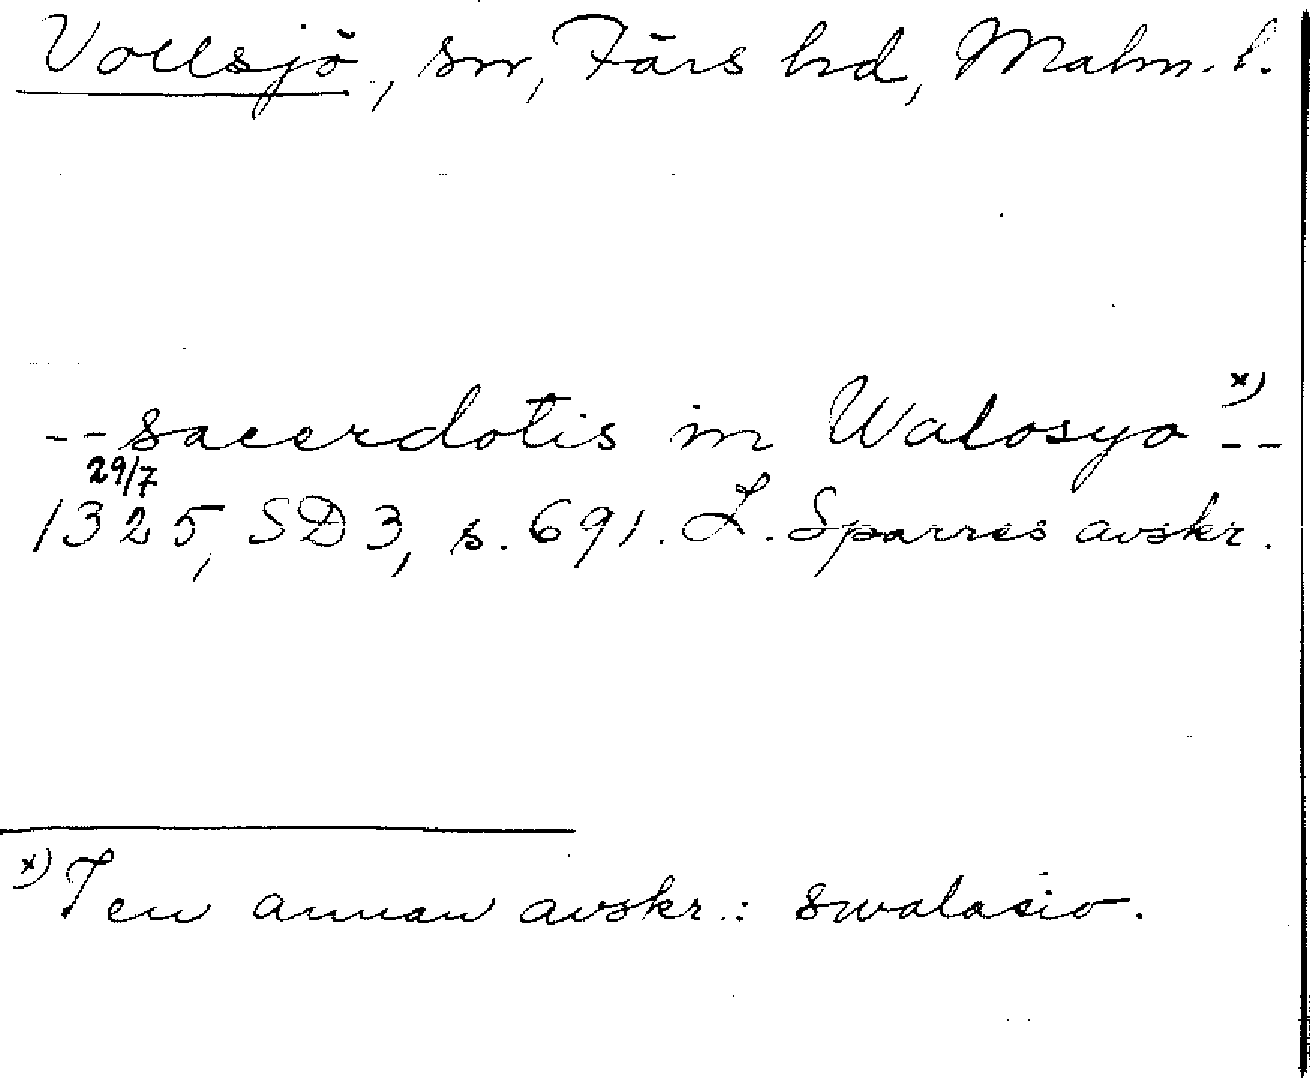 Vollsjö, sn, Färs hd, Malm. l.
-- sacerdotis in Walosyo x) --
29/7
1325, SD 3, s. 691. L. Sparres avskr.
x) I en annan avskr.: swalasio.